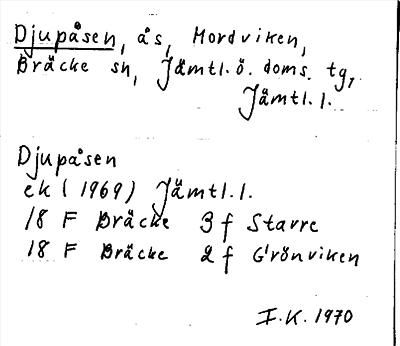 Djupåsen, ås, Mordviken,
Bräcke sn, Jämtl. ö. doms. tg,
Jämtl. l.
Djupåsen
ek (1969) Jämtl. l.
18 F Bräcke 3 f Stavre
18 F Bräcke 2 f Grönviken
I.K. 1970